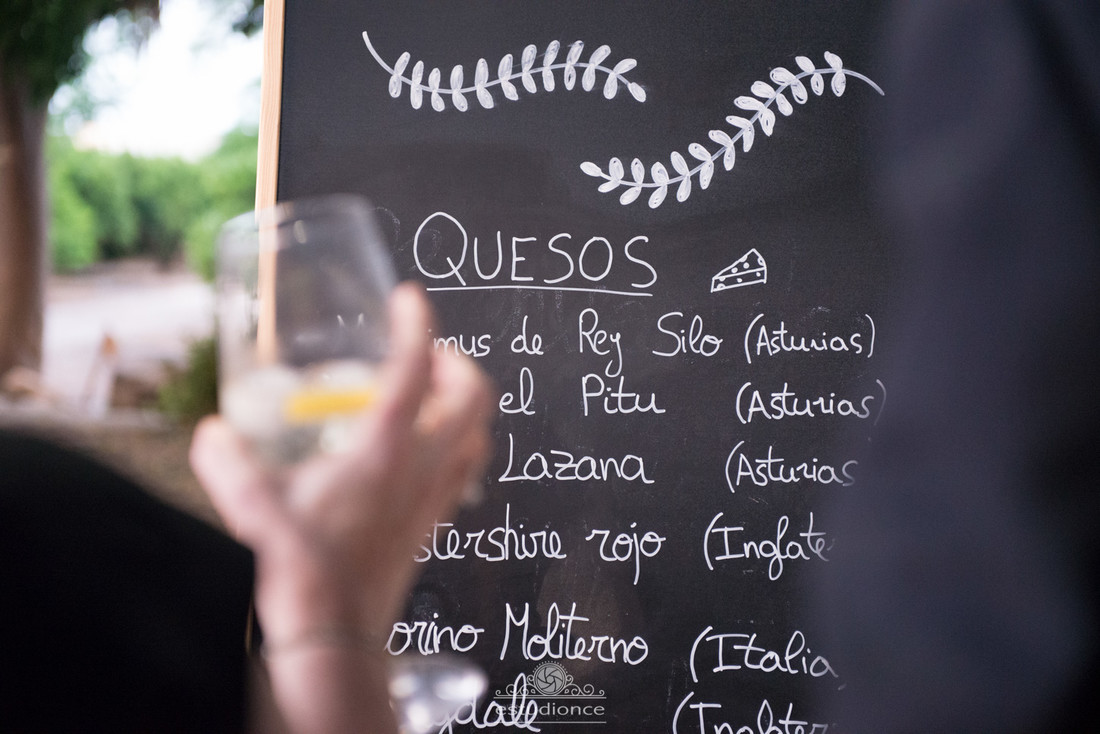 QUESOS
mus de Rey Silo (Asturias)
el Pitu (Asturias)
Lazana (Asturias
stershire rojo (Inglate
orino Moliterno (Italia
gdale (Inglater
estudionce